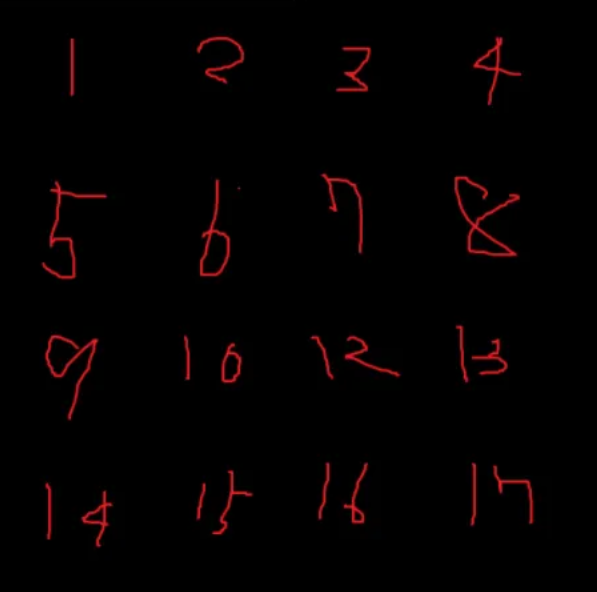 1 2 3 4
5 6 7 8
9 10 12 13
14 15 16 17